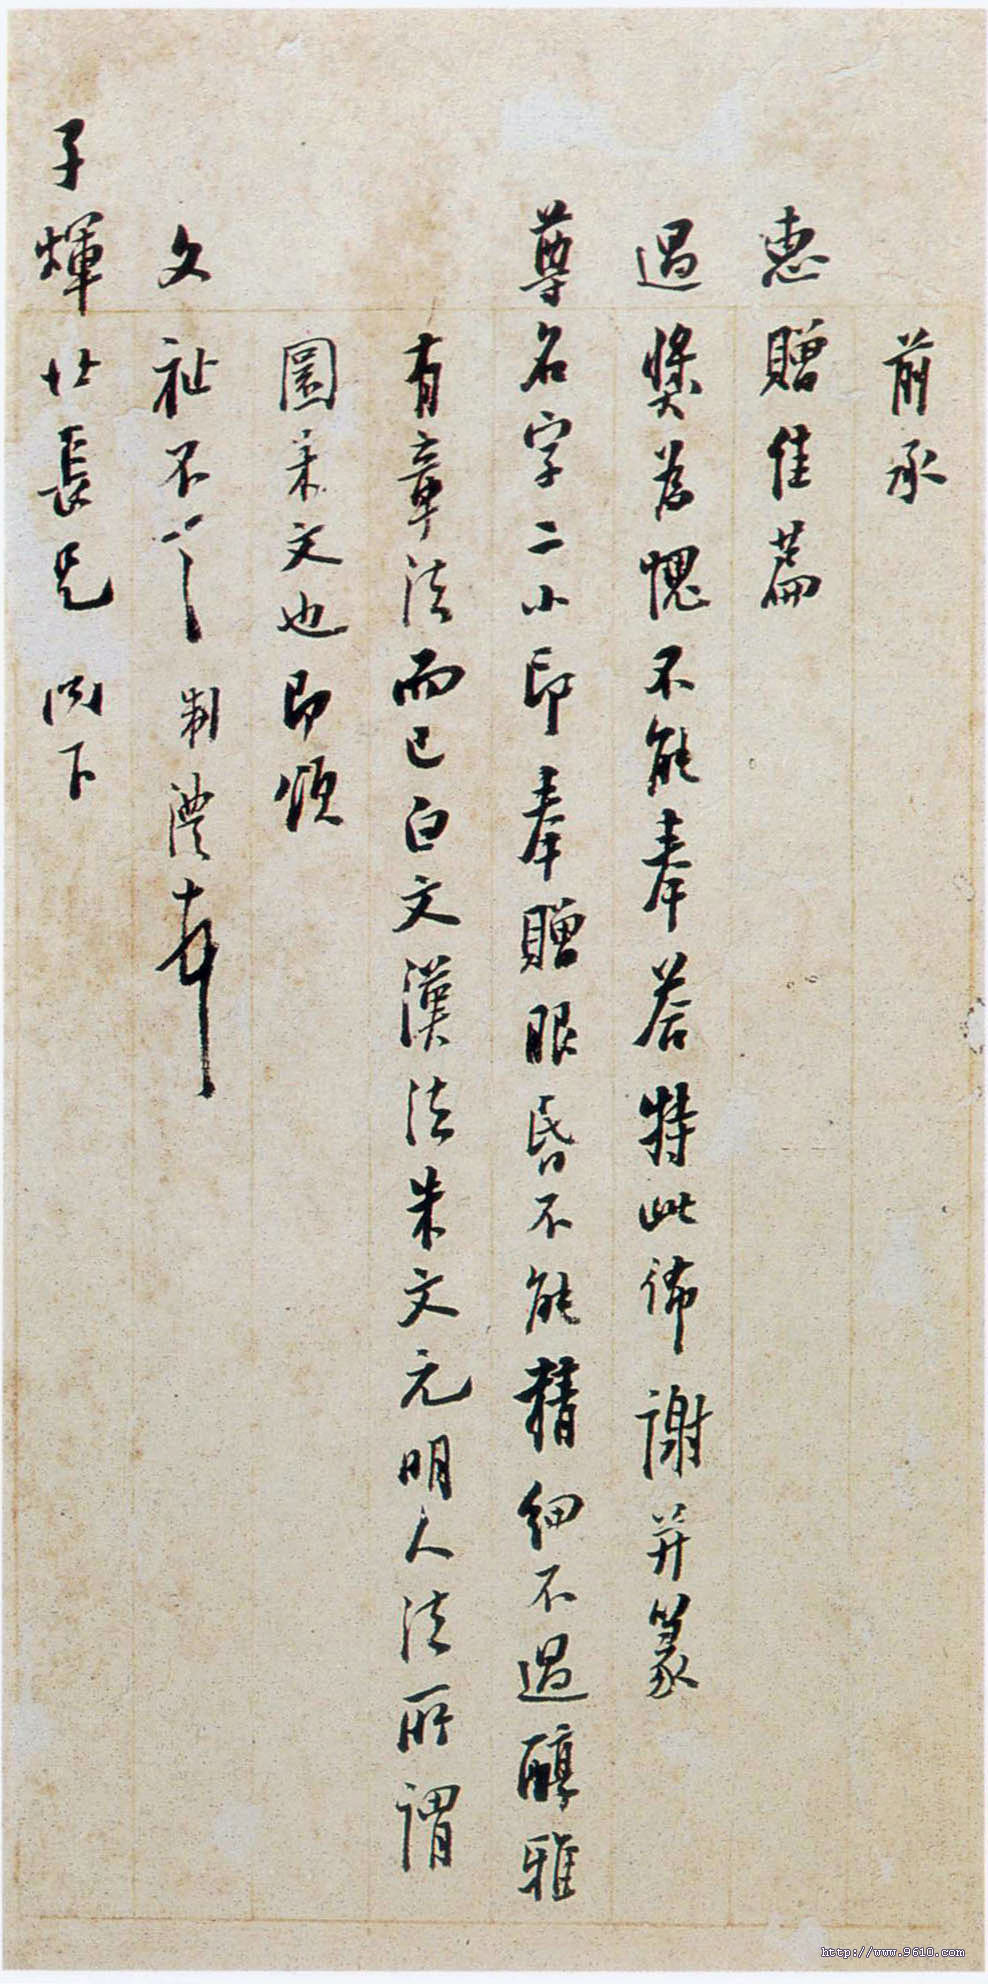 前承
惠贈佳篇
過獎為愧不能奉荅特此佈謝并篆
尊名字二小印奉贈眼昏不能精細不過醇雅
有章法而已白文漢法朱文元明人法所謂
圓朱文也即頌
文祉不一 制澧
子煇世長兄閣下
http://www.9610.com